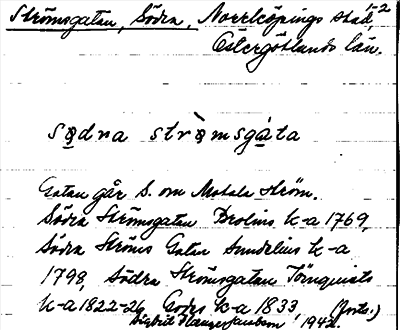 Strömsgatan, Södra, Norrköpings stad, 1-2
Östergötlands län.
sødra strømsgata
Gatan går S. om Motala ström.
Södra Strömsgatan Brolins k-a 1769,
Södra Ströms Gatan Sundelius k-a
1798, Södra Strömsgatan Törnquists
k-a 1822-26, k-a 1833, (Forts.)
Sigbrit 1942.